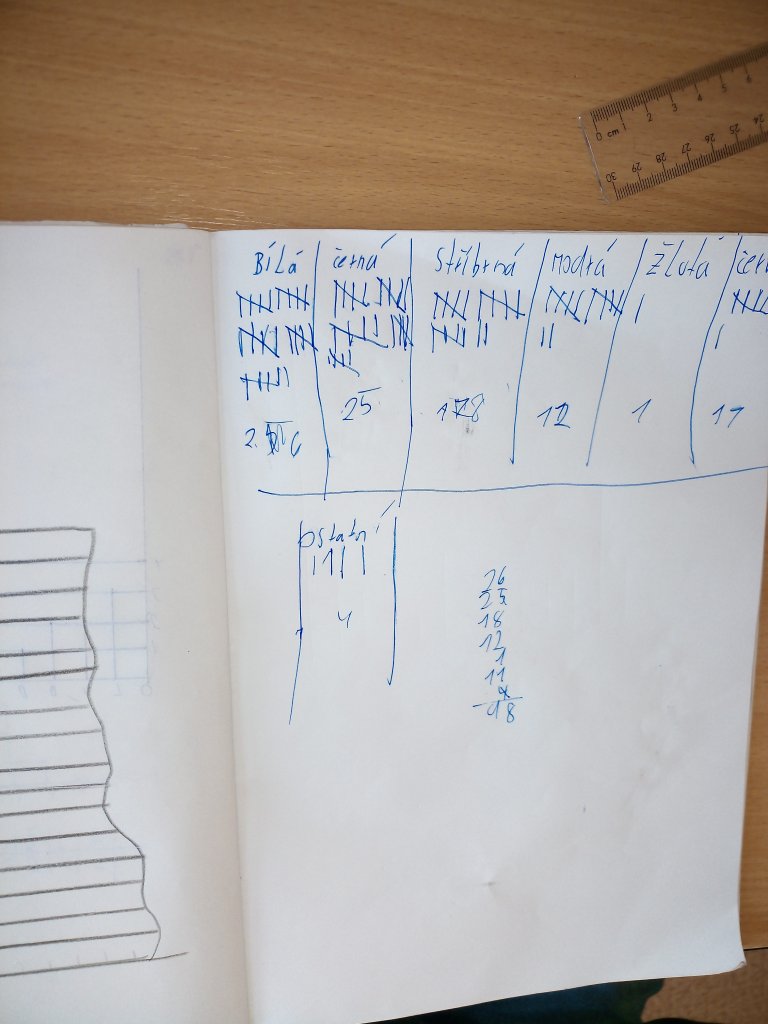 0 cm 1 2 3 4 5 6
30 29 28 27 26 25 24
Bílá černá Stříbrná Modrá Žlutá čer
25 12 1 11
ostatní
4
26
25
18
12
1
11
4
98